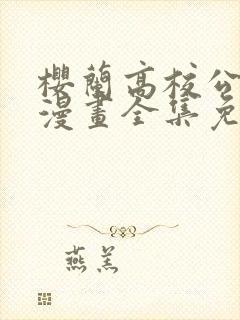 櫻蘭高校公
漫畫全集免
燕羔